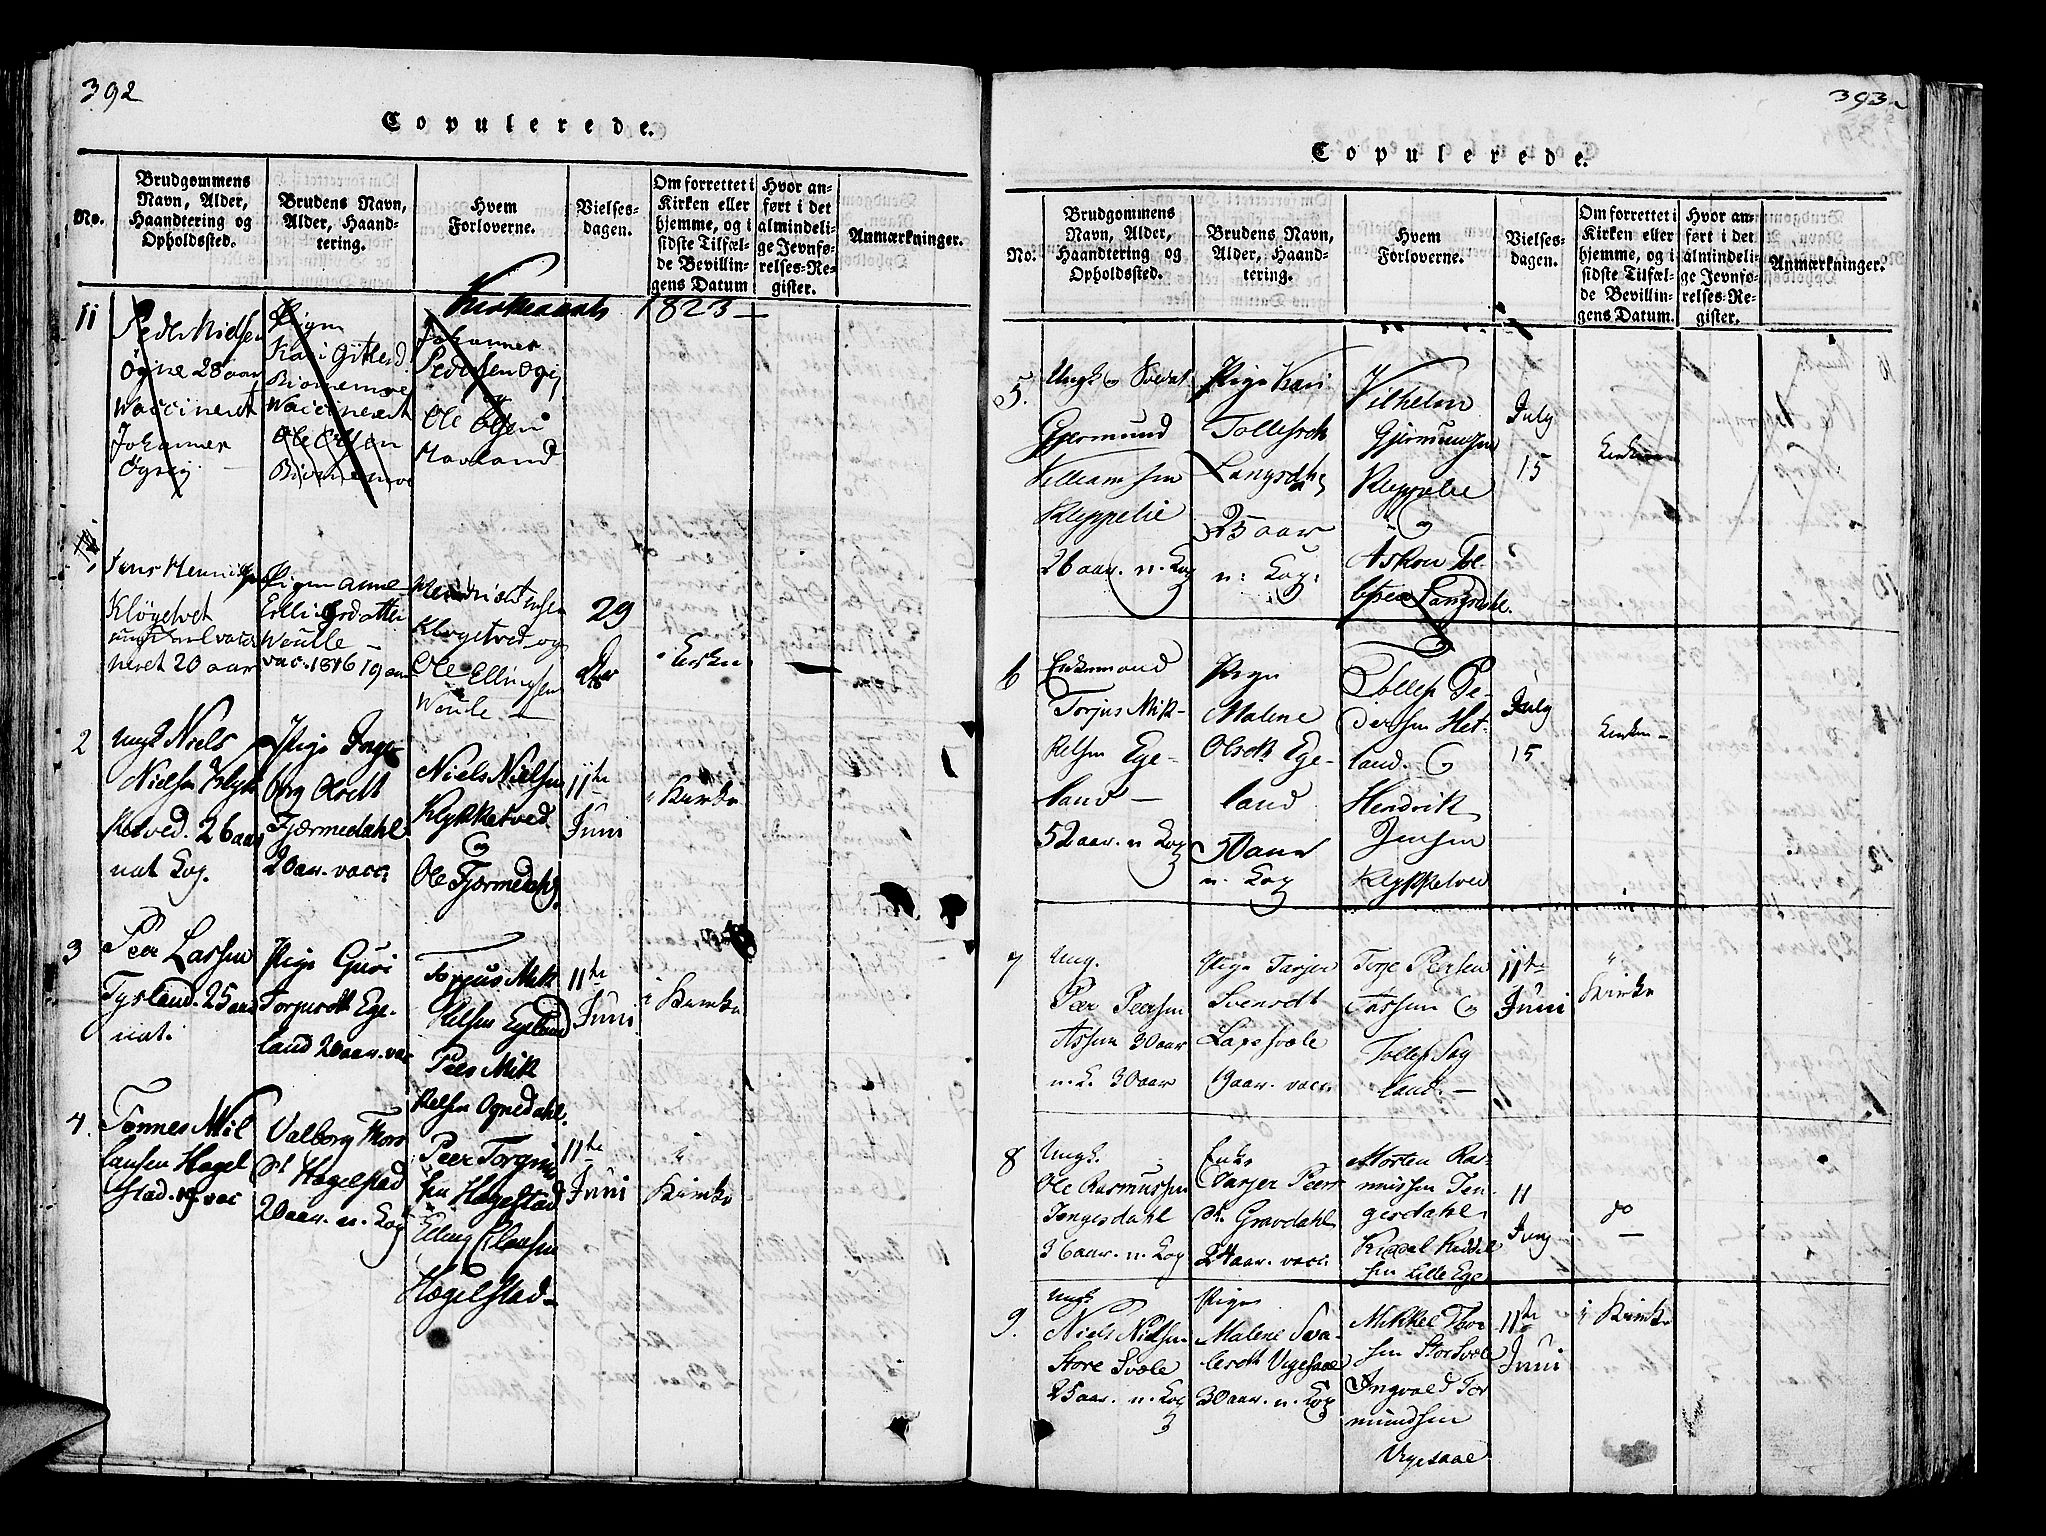 392
Copulerede.
No.
Brudgommens
Navn, Alder,
Haandtering og
Opholdssted.
Brudens Navn,
Alder, Haand-
tering.
Hvem
Forloverne.
Vielses-
dagen.
Om forrettet i
Kirken eller
hjemme, og i
sidste Tilfæl-
de Bevillin-
gens Datum
Hvor an-
ført i det
almindeli-
ge Jevnfø-
relses-Re-
gister.
Anmærkninger.
Kirkeaaret 1823
11
Peder Nielsen
Øgne 28 aar
Waccineret
Johannes
Øgrej
Pigen
Kari
Biornemoe
Waccineret
Ole Olsen
Biornemoe
Johannes
Pedersen
og
Ole Olsen
Jens
Kløgetvet
neret 20 aar
Pigen Anne
Ellingsdatter
Woulle
vac. 1816 19 aar
Kløgetved og
Ole Ellingsen
Woule
29
i Kirken
2
Ungk Niels
Nielsen Klyk
ketved. 26 aar
nat Kop.
Pige Inge
borg Olsdt
Fjærmedahl
20 aar. vacc.
Niels Nielsen
Klykketved
og
Ole Fjermedahl
11te
Juni
i Kirke
3
Peer Larsen
Tysland. 25 aar
nat.
Pige Guri
Torjusdt Ege-
land 20 aar. va
Torjus Mik
kelsen Egeland
Peer Mik
kelsen Ognedahl.
11te
Juni
i Kirke
4.
Tønnes Mil
lausen Hagel
stad. 19 vac
Valborg Thors
dt Hagelstad
20 aar. n. Kop
Peer Torgrim
sen Hægelstad
Elling Clausen
Hægelstad
11te
Juni
i
Kirke
393
Copulerede.
No.
Brudgommens
Navn, Alder,
Haandtering og
Opholdssted.
Brudens Navn,
Alder, Haand-
tering.
Hvem
Forloverne.
Vielses-
dagen.
Om forrettet i
Kirken eller
hjemme, og i
sidste Tilfæl-
de Bevillin-
gens Datum.
Hvor an-
ført i det
almindeli-
ge Jevnfø-
relses-Re-
gister.
Anmærkninger.
5.
Ungk. og Soldat
Gjermund
Villiamsen
Kleppelie
26 aar. n. Kop
Pige Kari
Tollefsdt
25 aar
n. Kop.
Vilhelm
Gjermunsen
Kleppelie
og
Askou Tol-
lefsen
July
15
Kirken
6
Enkemand
Torjus Mik-
kelsen Ege-
land
52 aar. n Kop
Pige
Malene
Olsdt Ege-
land
50 aar
n. Kop
Tollef Pe-
dersen Het-
land. og
Hendrik
Jensen
Klykketved
July
15
Kirken
7
Ung.
Peer Peersen
Assen 30 aar
n. K. 30 aar
Pige Tarjer
Svensdt
19 aar. vacc.
Torje Peersen
Assen og
Tollef Sag
land.
11te
Juni
i
Kirke
8
Ungk.
Ole Rasmussen
Tengesdahl
36 aar. n. Kop
Enke
Tarjer Peers
dt. Gravdahl
24 aar. vacc.
Morten Ras-
mussen Ten-
gesdahl
Kiddel Kiddel
sen Lille Ege
11
Juny
do
9.
Ungk.
Niels Nielsen
Store Svæle
25 aar. n. Kop
Pige
Malene Iva-
lersdt Vegesaae
30 aar. n. Kop
Mikkel Thor
sen Stor Svæle
Ingvald Tor
mundsen
Vegesaae
11te
Juni
i Kirke